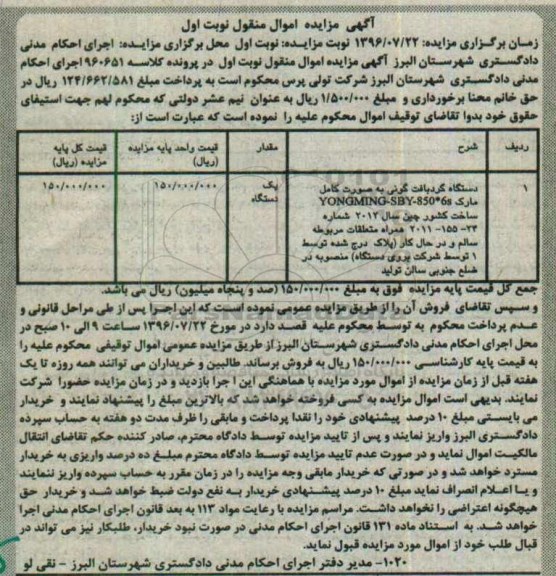 آگهی مزایده اموال منقول نوبت اول
زمان برگزاری مزایده: ۱۳۹۶/۰۷/۲۲ نوبت مزایده: نوبت اول محل برگزاری مزایده: اجرای احکام مدنی
دادگستری شهرستان البرز آگهی مزایده اموال منقول نوبت اول در پرونده کلاسه ۹۶۰۶۵۱ اجرای احکام
مدنی دادگستری شهرستان البرز شرکت تولی پرس محکوم است به پرداخت مبلغ ۱۲۴/۶۶۲/۵۸۱ ریال در
حق خانم محنا برخورداری و مبلغ ۱/۵۰۰/۰۰۰ ریال به عنوان نیم عشر دولتی که محکوم لهم جهت استیفای
حقوق خود بدوا تقاضای توقیف اموال محکوم علیه را نموده است که عبارت است از:
ردیف شرح مقدار قیمت واحد پایه مزایده (ریال) قیمت کل پایه مزایده (ریال)
۱ دستگاه گردبافت گونی به صورت کامل یک دستگاه ۱۵۰/۰۰۰/۰۰۰ ۱۵۰/۰۰۰/۰۰۰
مارک YONGMING-SBY-850*6s
ساخت کشور چین سال ۲۰۱۲ شماره
۲۳-۱۵۵-۲۰۱۱ همراه متعلقات مربوطه
سالم و در حال کار (پلاک درج شده توسط
۱ توسط شرکت بروی دستگاه) منصوبه در
ضلع جنوبی سالن تولید
جمع کل قیمت پایه مزایده فوق به مبلغ ۱۵۰/۰۰۰/۰۰۰ (صد و پنجاه میلیون) ریال می باشد.
و سپس تقاضای فروش آن را از طریق مزایده عمومی نموده است که این اجرا پس از طی مراحل قانونی و
عدم پرداخت محکوم به توسط محکوم علیه قصد دارد در مورخ ۱۳۹۶/۰۷/۲۲ ساعت ۹ الی ۱۰ صبح در
محل اجرای احکام مدنی دادگستری شهرستان البرز از طریق مزایده عمومی اموال توقیفی محکوم علیه را
به قیمت پایه کارشناسی ۱۵۰/۰۰۰/۰۰۰ ریال به فروش برساند. طالبین و خریداران می توانند همه روزه تا یک
هفته قبل از زمان مزایده از اموال مورد مزایده با هماهنگی این اجرا بازدید و در زمان مزایده حضورا شرکت
نمایند. بدیهی است اموال مزایده به کسی فروخته خواهد شد که بالاترین مبلغ را پیشنهاد نمایند و خریدار
می بایستی مبلغ ۱۰ درصد پیشنهادی خود را نقدا پرداخت و مابقی را ظرف مدت دو هفته به حساب سپرده
دادگستری البرز واریز نمایند و پس از تایید مزایده توسط دادگاه محترم، صادر کننده حکم تقاضای انتقال
مالکیت اموال نماید و در صورت عدم تایید مزایده توسط دادگاه محترم مبلغ ده درصد واریزی به خریدار
مسترد خواهد شد و در صورتی که خریدار مابقی وجه مزایده را در زمان مقرر به حساب سپرده واریز ننمایند
و یا اعلام انصراف نماید مبلغ ۱۰ درصد پیشنهادی خریدار به نفع دولت ضبط خواهد شد و خریدار حق
هیچگونه اعتراضی را نخواهد داشت. مراسم مزایده با رعایت مواد ۱۱۳ به بعد قانون اجرای احکام مدنی اجرا
خواهد شد. به استناد ماده ۱۳۱ قانون اجرای احکام مدنی در صورت نبود خریدار، طلبکار نیز می تواند در
قبال طلب خود از اموال مورد مزایده قبول نماید.
۱۰۲۰- مدیر دفتر اجرای احکام مدنی دادگستری شهرستان البرز - نقی لو